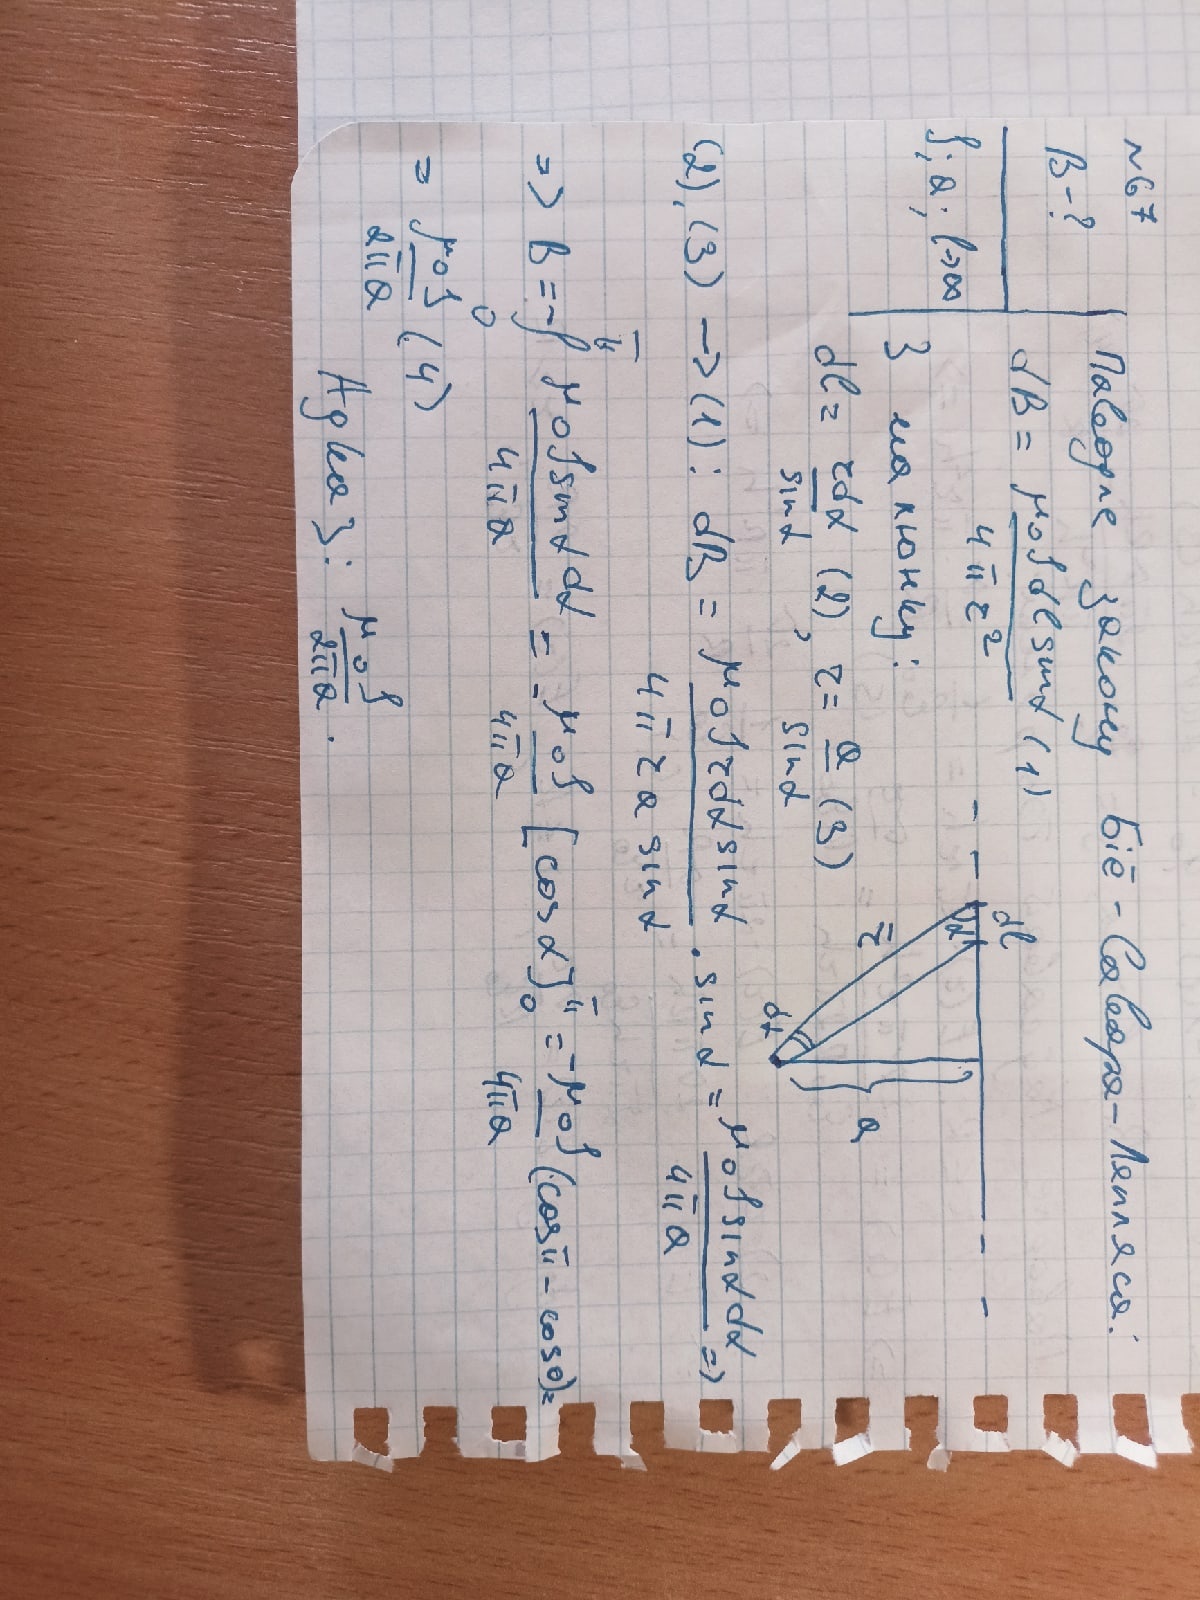 №67
B-?
J; a; l→∞
Паводле закону Біё-Савара-Лапласа:
dB = μ₀Jdl sinα / 4πr² (1)
dl
α
r̄
dα
a
З малюнку:
dl = rdα / sinα (2), r = a / sinα (3)
(2), (3) → (1): dB = μ₀Jrdα sinα / 4πra sinα · sinα = μ₀J sinαdα / 4πa =>
=> B = -∫₀^π μ₀J sinαdα / 4πa = -μ₀J / 4πa [cosα]₀^π = -μ₀J / 4πa (cosπ - cos0) =
= μ₀J / 2πa (4)
Адказ: μ₀J / 2πa.